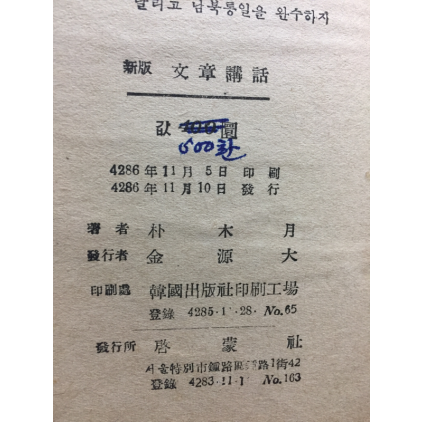 달리고 남북통일을 완수하자
新版 文章講話
값 圜
500환
4286年11月 5日 印刷
4286年11月10日 發行
著者 朴木月
發行者 金源大
印刷處 韓國出版社印刷工場
登錄 4285·1 ·28· No.65
發行所 啓蒙社
서울特別市鍾路區 路1街42
登錄 4283·11·1 No.163